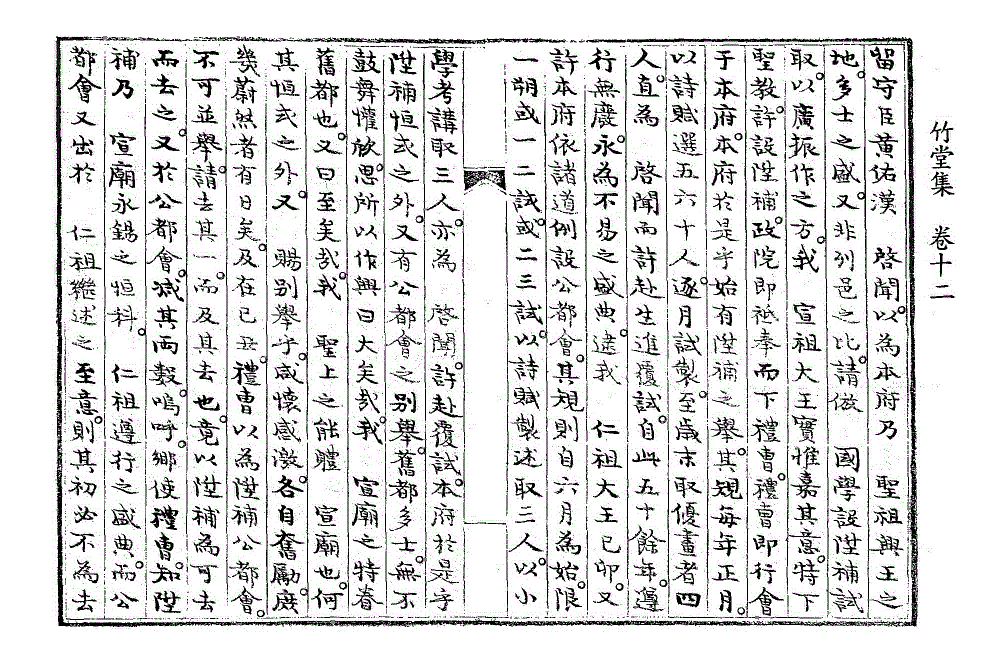 竹堂集 卷十二
留守臣黃佑漢 啓聞。以為本府乃 聖祖興王之
地。多士之盛。又非列邑之比。請倣 國學設陞補試
取。以廣振作之方。我 宣祖大王實惟嘉其意。特下
聖教。許設陞補。政院卽祗奉而下禮曹。禮曹卽行會
于本府。本府於是乎始有陞補之擧。其規每年正月。
以詩賦選五六十人。逐月試製。至歲末取優畫者四
人。直為 啓聞而許赴生進覆試。自此五十餘年。遵
行無廢。永為不易之盛典。逮我 仁祖大王己卯。又
許本府依諸道例設公都會。其規則自六月為始。限
一朔或一二試。或二三試。以詩賦製述取三人。以小
學考講取三人。亦為 啓聞。許赴覆試。本府於是乎
陞補恒式之外。又有公都會之別擧。舊都多士。無不
鼓舞懽欣。思所以作興曰大矣哉。我 宣廟之特眷
舊都也。又曰至矣哉。我 聖上之能體 宣廟也。何
其恒式之外。又 賜別擧乎。咸懷感激。各自奮勵。庶
幾蔚然者有日矣。及在己丑。禮曹以為陞補公都會。
不可並擧。請去其一。而及其去也。竟以陞補為可去
而去之。又於公都會。減其兩數。嗚呼。鄉使禮曹。知陞
補乃 宣廟永錫之恒科。 仁祖遵行之盛典。而公
都會又出於 仁祖繼述之至意。則其初必不為去